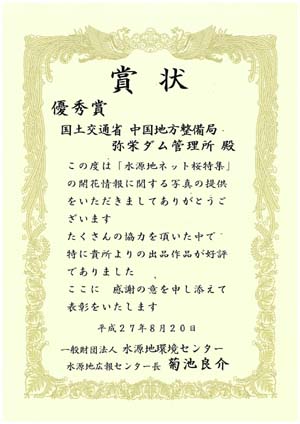 賞状
優秀賞
国土交通省 中国地方整備局
弥栄ダム管理所 殿
この度は「水源地ネット桜特集」
の開花情報に関する写真の提供
をいただきましてありがとうご
ざいます
たくさんの協力を頂いた中で
特に貴所よりの出品作品が好評
でありました
ここに 感謝の意を申し添えて
表彰をいたします
平成27年8月20日
一般財団法人 水源地環境センター
水源地広報センター長 菊池良介